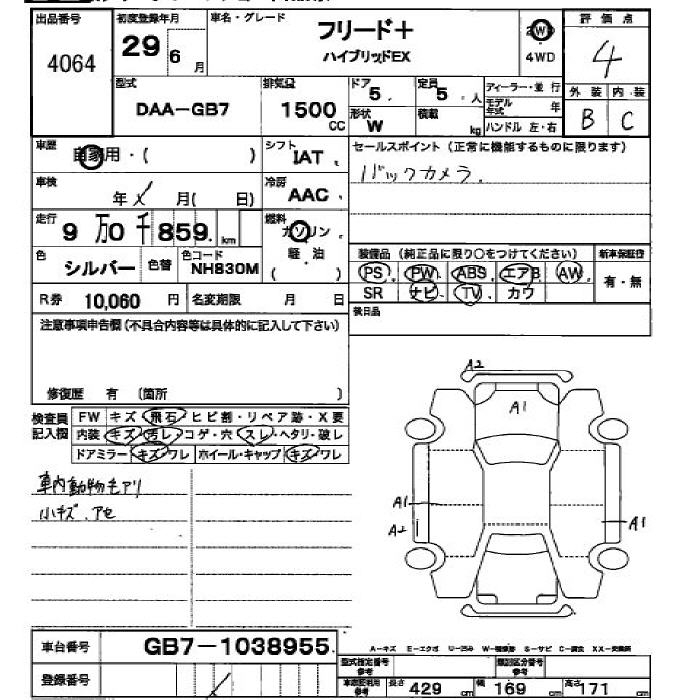 出品番号 初度登録年月 車名・グレード 評価点
4064 29 6月 フリード+ 2WD 4
ハイブリッドEX 4WD
型式 排気量 ドア 定員 ディーラー・並行 外装 内装
DAA-GB7 1500 CC 5. 5. 人 モデル年式 年 B C
形状 W 積載 kg ハンドル 左・右
車歴 自家用・( ) シフト IAT セールスポイント(正常に機能するものに限ります)
車検 年 月( 日) 冷房 AAC バックカメラ.
走行 9万0千859. km 燃料 ガソリン
軽・油
( )
色 シルバー 色替 色コード NH830M
装備品(純正品に限り○をつけてください) 新車保証書
PS PW ABS エアB AW 有・無
SR ナビ TV カワ
R券 10,060 円 名変期限 月 日
後日品
注意事項申告欄(不具合内容等は具体的に記入して下さい)
修復歴 有 (箇所 )
検査員記入欄 FW キズ・飛石・ヒビ割・リペア跡・X要
内装 キズ・汚レ・コゲ・穴・スレ・ヘタリ・破レ
ドアミラー キズ・ワレ ホイール・キャップ キズ・ワレ
車内動物毛アリ
小キズ、アセ
A2
A1
A1
A2
A1
車台番号 GB7-1038955.
登録番号
A-キズ E-エクボ U-凹み W-補修跡 S-サビ C-腐食 XX-交換済
型式指定番号 参考 類別区分番号 参考
車志証利用 参考 長さ 429 cm 幅 169 cm 高さ 171 cm